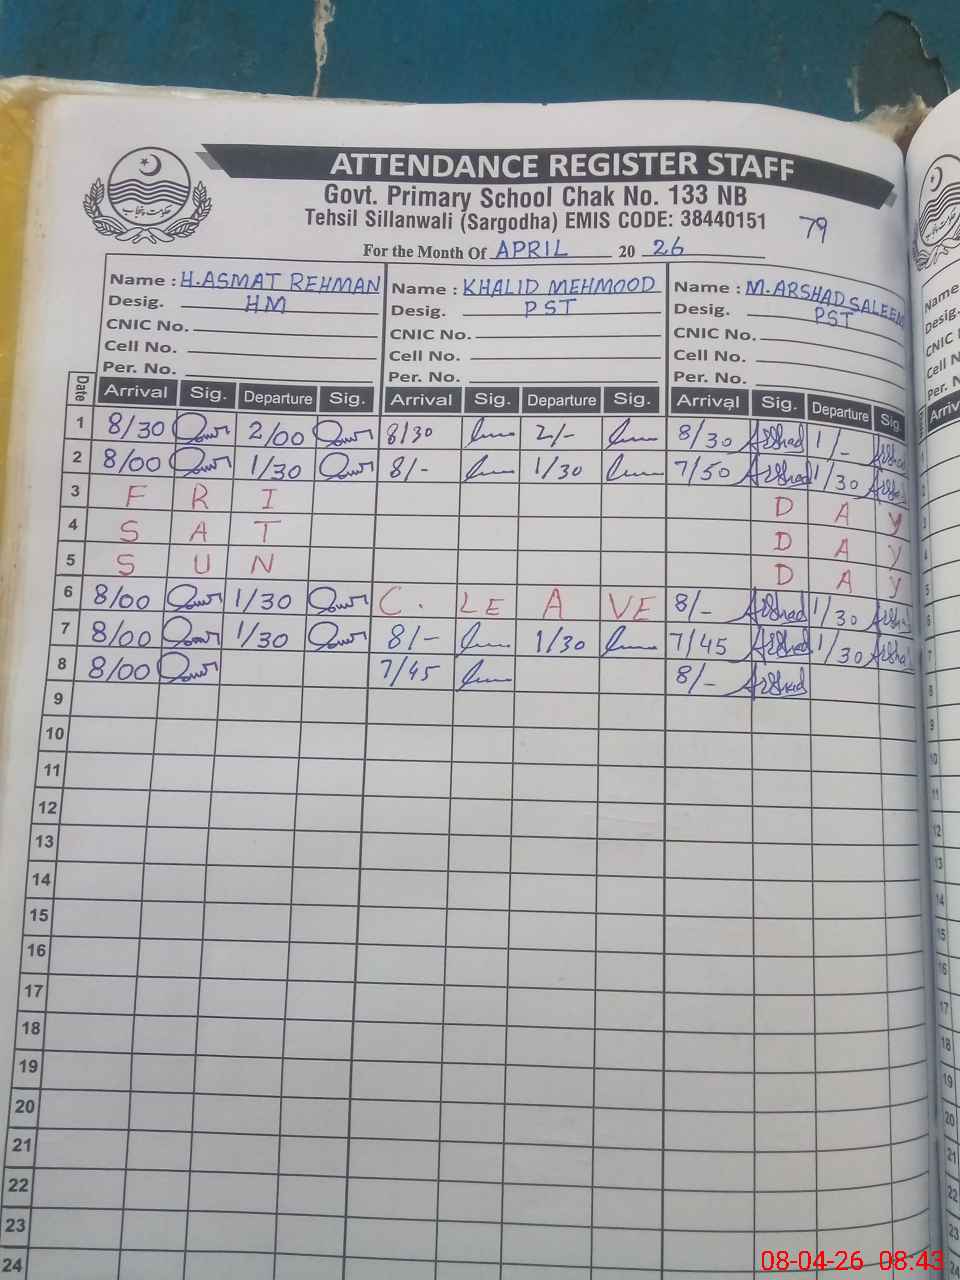 ATTENDANCE REGISTER STAFF
Govt. Primary School Chak No. 133 NB
Tehsil Sillanwali (Sargodha) EMIS CODE: 38440151
79
حکومت پنجاب
For the Month Of APRIL 20 26
Name : H.ASMAT REHMAN Name : KHALID MEHMOOD Name : M.ARSHAD SALEEM
Desig. HM Desig. PST Desig. PST
CNIC No. CNIC No. CNIC No.
Cell No. Cell No. Cell No.
Per. No. Per. No. Per. No.
Date Arrival Sig. Departure Sig. Arrival Sig. Departure Sig. Arrival Sig. Departure Sig.
1 8/30 2/00 8/30 2/- 8/30 Arshad 1/- Arshad
2 8/00 1/30 8/- 1/30 7/50 Arshad 1/30 Arshad
3 F R I D A Y
4 S A T D A Y
5 S U N D A Y
6 8/00 1/30 C. LE A VE 8/- Arshad 1/30 Arshad
7 8/00 1/30 8/- 1/30 7/45 Arshad 1/30 Arshad
8 8/00 7/45 8/- Arshad
9
10
11
12
13
14
15
16
17
18
19
20
21
22
23
24
08-04-26 08:43